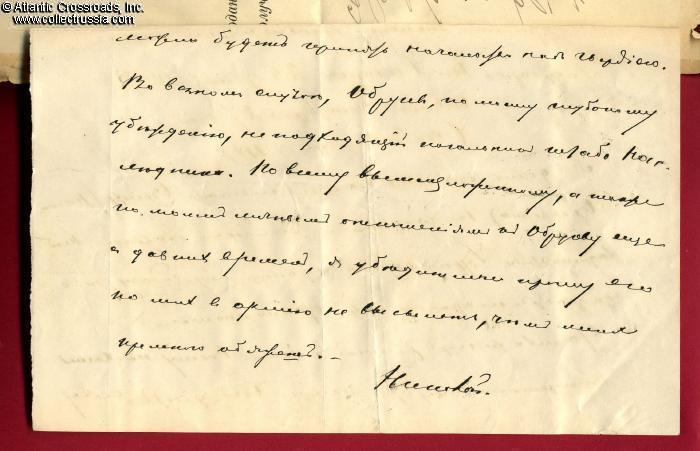 © Atlantic Crossroads, Inc.
www.collectrussia.com
можно будетъ принять начальство надъ гвардіею.
Во всякомъ случаѣ, Обручевъ, по моему глубокому
убѣжденію, не подходящій начальникъ штаба Нас-
лѣдника. По всему вышеизложенному, а также
по моимъ личнымъ отношеніямъ къ Обручеву еще
с давнихъ временъ, я убѣдительно прошу его
ко мнѣ в армію не высылать, чѣмъ меня
премного обяжешь. –
Николай.